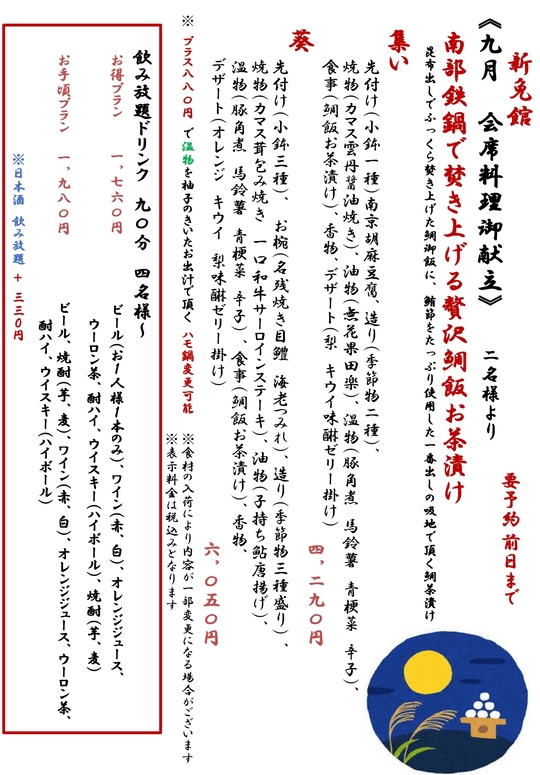 新兔館
要予約 前日まで
《九月 会席料理御献立》 二名様より
南部鉄鍋で焚き上げる贅沢鯛飯お茶漬け
昆布出しでふっくら焚き上げた鯛御飯に、鯖節をたっぷり使用した一番出しの吸地で頂く鯛茶漬け
集い
先付け(小鉢一種)南京胡麻豆腐、造り(季節物二種)、
焼物(カマス雲丹醤油焼き)、油物(無花果田楽)、温物(豚角煮 馬鈴薯 青梗菜 辛子)、
食事(鯛飯お茶漬け)、香物、デザート(梨 キウイ味醂ゼリー掛け)
四、二九〇円
葵
先付け(小鉢三種)、 お椀(名残焼き目鱧 海老つみれ)、造り(季節物三種盛り)、
焼物(カマス茸包み焼き 一口和牛サーロインステーキ)、油物(子持ち鮎唐揚げ)、
温物(豚角煮 馬鈴薯 青梗菜 辛子)、食事(鯛飯お茶漬け)、香物、
デザート(オレンジ キウイ 梨味醂ゼリー掛け)
六、〇五〇円
※ プラス八八〇円 で温物を柚子のきいたお出汁で頂く ハモ鍋変更可能
※食材の入荷により内容が一部変更になる場合がございます
※表示料金は税込みとなります
飲み放題ドリンク 九〇分 四名様～
お得プラン 一、七六〇円
ビール(お1人様1本のみ)、ワイン(赤、白)、オレンジジュース、
ウーロン茶、酎ハイ、ウイスキー(ハイボール)、焼酎(芋、麦)
お手頃プラン 一、九八〇円
ビール、焼酎(芋、麦)、ワイン(赤、白)、オレンジジュース、ウーロン茶、
酎ハイ、ウイスキー(ハイボール)
※日本酒 飲み放題 + 三三〇円